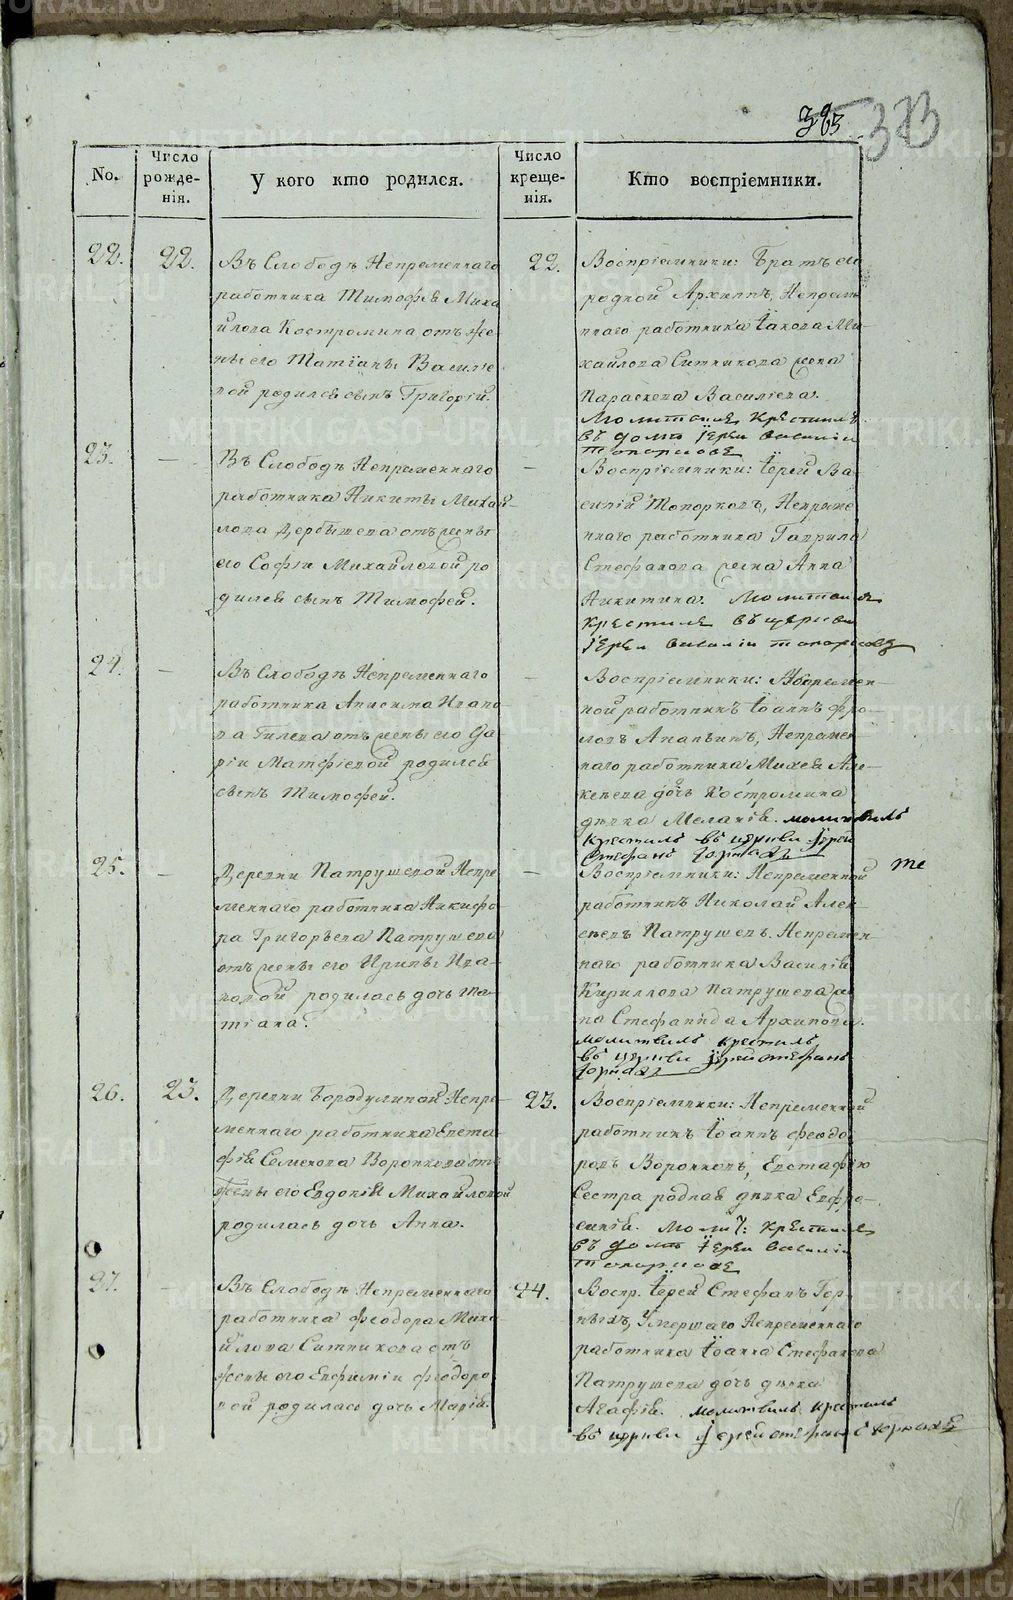 383
No.
Число рожде-нія.
У кого кто родился.
Число креще-нія.
Кто воспріемники.
22.
22.
Въ Слободѣ Непременнаго
работника Тимофея Миха
йлова Костромина отъ же-
ны его Татіаны Василіе
вой родился сынъ Григорій.
22.
Воспріемники: Братъ его
родной Архиппъ, Непремѣ
ннаго работника Іакова Ми-
хайлова Ситникова жена
Параскева Василіева.
Молитвилъ Крестилъ
въ домѣ Іерей Василіи
Топорковъ
23.
—
Въ Слободѣ Непременнаго
работника Никиты Михай-
лова Дербышева отъ жены
его Софіи Михайловой ро
дился сынъ Тимофей.
—
Воспріемники: Іерей Ва
силій Топорковъ, Непреме
ннаго работника Гаврила
Стефанова жена Анна
Никитина. Молитвилъ
Крестилъ въ церкви
Іереи Василіи Топорковъ
24.
—
Въ Слободѣ Непременнаго
работника Анисима Ивано-
ва Гилева отъ жены его Да-
ріи Матфіевой родился
сынъ Тимофей.
—
Воспріемники: Непремен-
ной работникъ Іоаннъ Фро-
ловъ Ананьинъ, Непремен
наго работника Михея Але-
ксеева дочь Костромина
дѣвка Меланія. молитвилъ
крестилъ въ церкви Іерей
Стефанъ Горныхъ
25.
—
Деревни Патрушевой Непре
меннаго работника Никифо-
ра Григорьева Патрушева
отъ жены его Ирины Ива-
новой родилась дочь Та-
тіана.
—
Воспріемники: Непременной
работникъ Николай Алек
сеевъ Патрушевъ. Непремен-
наго работника Василія
Кириллова Патрушева же
на Стефанида Архипова.
молитвилъ крестилъ
въ церкви Іерей Стефанъ
Горныхъ
те
26.
23.
Деревни Бородулиной Непре-
меннаго работника Евста-
фія Семенова Воронкова отъ
жены его Евдокіи Михайловой
родилась дочь Анна.
23.
Воспріемники: Непременной
работникъ Іоаннъ Феодо
ровъ Воронковъ, Евстафію
Сестра родная дѣвка Евфро-
синія. Молит: крестилъ
въ домѣ Іереи Василіи
Топорковъ
27.
—
Въ Слободѣ Непременнаго
работника Феодора Миха
йлова Ситникова отъ
жены его Евфиміи Феодоро
вой родилась дочь Марія.
24.
Воспр. Іерей Стефанъ Гор
ныхъ, Умершаго Непременнаго
работника Іоанна Стефанова
Патрушева дочь дѣвка
Агафія. молитвилъ крестилъ
въ церкви Іерей Стефанъ Горныхъ